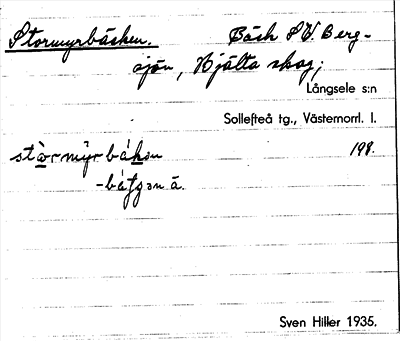 Stormyrbäcken. Bäck S.V. Berg-
sjön, Hjälta skog;
Långsele s:n
Sollefteå tg., Västernorrl. l.
stòrmyrbákən 198.
-bátjən ä.
Sven Hiller 1935.